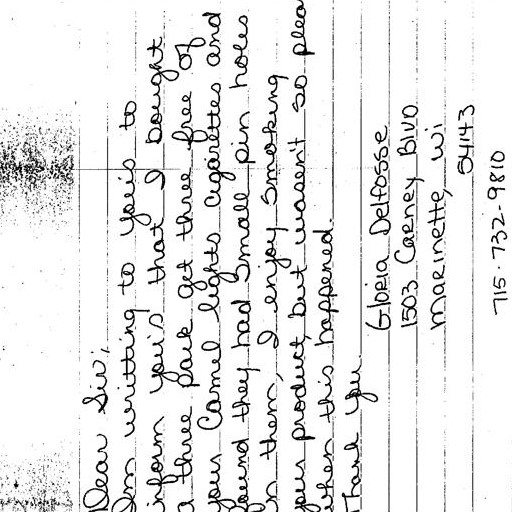 Dear Sir,
Im writting to you's to
inform you's that I bought
a three pack get three free of
your Camel lights cigarettes and
found they had small pin holes
in them, I enjoy smoking
your product, but wasen't so plea
when this happened.
Thank you
Gloria Delfosse
1503 Carney Blvd
Marinette, Wi
54143
715-732-9810